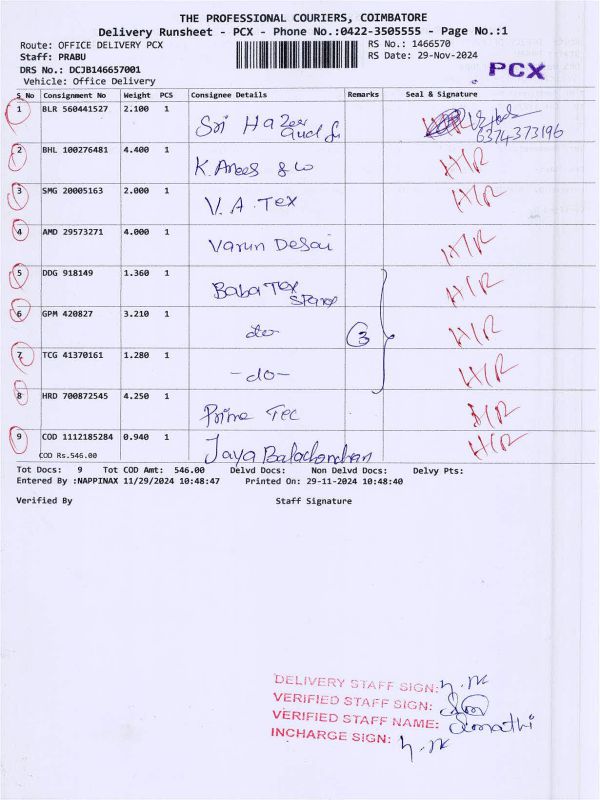 THE PROFESSIONAL COURIERS, COIMBATORE
Delivery Runsheet - PCX - Phone No.:0422-3505555 - Page No.:1
Route: OFFICE DELIVERY PCX RS No.: 1466570
Staff: PRABU RS Date: 29-Nov-2024
DRS No.: DCJB146657001 PCX
Vehicle: Office Delivery
S No Consignment No Weight PCS Consignee Details Remarks Seal & Signature
1 BLR 560441527 2.100 1 Sri 6374373196
2 BHL 100276481 4.400 1 K. Anees & Co H/R
3 SMG 20005163 2.000 1 V.A. Tex H/R
4 AMD 29573271 4.000 1 Varun Desai H/R
5 DDG 918149 1.360 1 Baba Tex H/R
6 GPM 420827 3.210 1 do 3 H/R
7 TCG 41370161 1.280 1 -do- H/R
8 HRD 700872545 4.250 1 Prime Tec H/R
9 COD 1112185284 0.940 1 Jaya Balachandran H/R
COD Rs.546.00
Tot Docs: 9 Tot COD Amt: 546.00 Delvd Docs: Non Delvd Docs: Delvy Pts:
Entered By :NAPPINAX 11/29/2024 10:48:47 Printed On: 29-11-2024 10:48:40
Verified By Staff Signature
DELIVERY STAFF SIGN:
VERIFIED STAFF SIGN:
VERIFIED STAFF NAME:
INCHARGE SIGN: